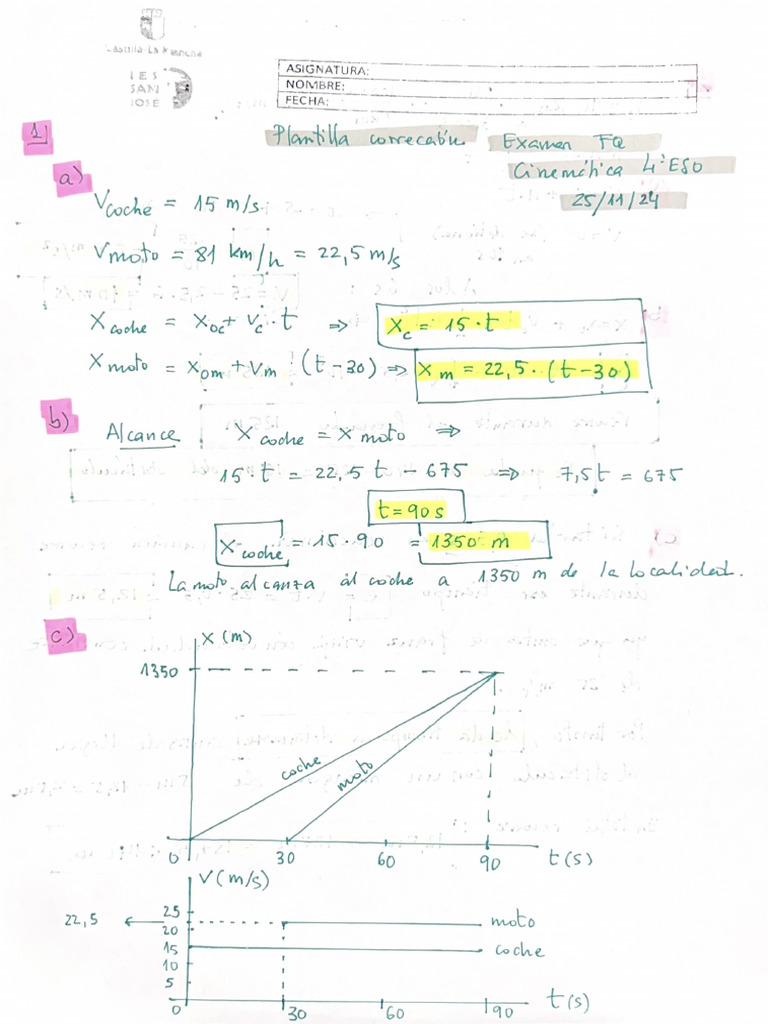 Castilla-La Mancha
IES
SAN
JOSÉ
ASIGNATURA:
NOMBRE:
FECHA:
Plantilla corrección Examen FQ
Cinemática 4º ESO
25/11/24
1
a)
Vcoche = 15 m/s
Vmoto = 81 km/h = 22,5 m/s
Xcoche = Xoc + Vc · t ⇒ Xc = 15·t
Xmoto = Xom + Vm (t-30) ⇒ Xm = 22,5·(t-30)
b)
Alcance Xcoche = Xmoto ⇒
15·t = 22,5 t - 675 ⇒ 7,5t = 675
t = 90 s
Xcoche = 15·90 = 1350 m
La moto alcanza al coche a 1350 m de la localidad.
c)
X (m)
1350
coche
moto
0 30 60 90 t(s)
V(m/s)
25
22,5
20
15
10
5
moto
coche
0 30 60 90 t(s)